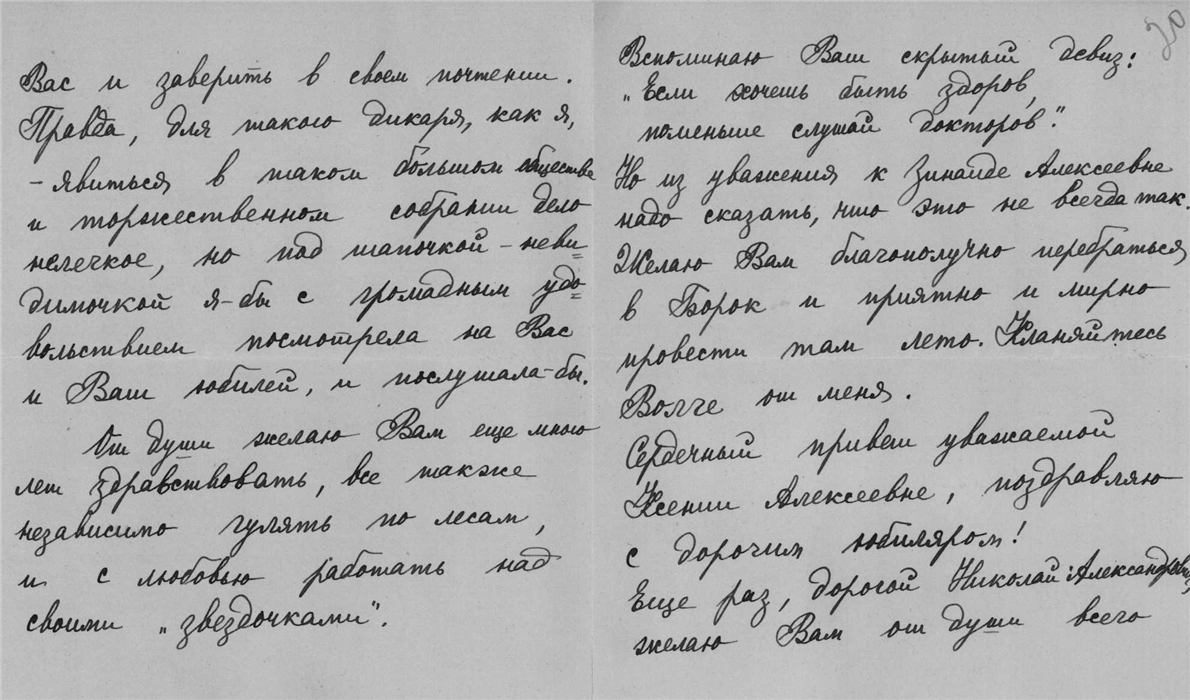 Вас и заверить в своем почтении.
Правда, для такого дикаря, как я,
– явиться в таком большом обществе
и торжественном собрании дело
нелегкое, но под шапочкой – неви=
димочкой я-бы с громадным удо=
вольствием посмотрела на Вас
и Ваш юбилей, и послушала-бы.
От души желаю Вам еще много
лет здравствовать, все также
независимо гулять по лесам,
и с любовью работать над
своими „звездочками".
20
Вспоминаю Ваш скрытый девиз:
„Если хочешь быть здоров,
поменьше слушай докторов".
Но из уважения к Зинаиде Алексеевне
надо сказать, что это не всегда так.
Желаю Вам благополучно перебраться
в Борок и приятно и мирно
провести там лето. Кланяйтесь
Волге от меня.
Сердечный привет уважаемой
Ксении Алексеевне, поздравляю
с дорогим юбиляром!
Еще раз, дорогой Николай Александрович,
желаю Вам от души всего